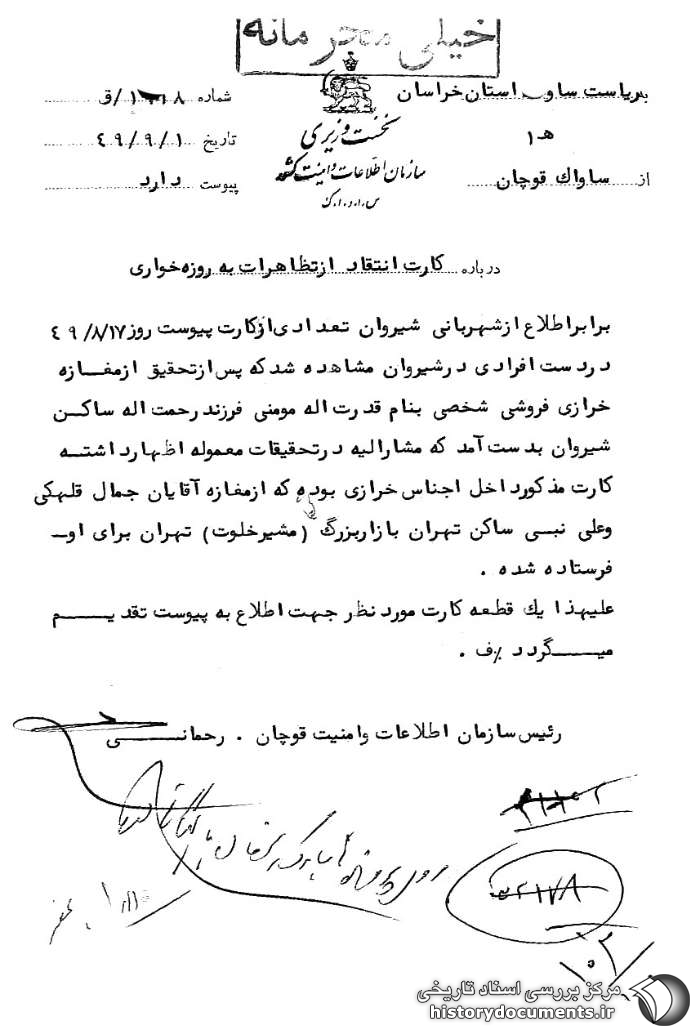 خیلی محرمانه
به ریاست ساواك استان خراسان
ه‍ ۱
از ساواك قوچان
نخست وزیری
سازمان اطلاعات و امنیت کشور
س.ا.و.ا.ک
شماره /ق
تاریخ ۴۹/۹/۱
پیوست دارد
درباره کارت انتقاد ازتظاهرات به روزه خواری
برابراطلاع ازشهربانی شیروان تعدادی ازکارت پیوست روز ۴۹/۸/۱۷
دردست افرادی درشیروان مشاهده شدکه پس ازتحقیق ازمغـازه
خرازی فروشی شخصی بنام قدرت اله مومنی فرزند رحمت اله ساکـن
شیروان بدست آمد که مشارالیه درتحقیقات معموله اظهارداشتـه
کارت مذکورداخل اجناس خرازی بوده که ازمغازه آقایان جمال قلهکی
وعلی نبی ساکن تهران بازاربزرگ (مشیرخلوت) تهران برای اوـ
فرستاده شده .
علیهذا یك قطعه کارت مورد نظر جهت اطلاع به پیوست تقدیـــم
میــــگردد ٪ف .
رئیس سازمان اطلاعات وامنیت قوچان . رحمانـــی
مرکز بررسی اسناد تاریخی
historydocuments.ir